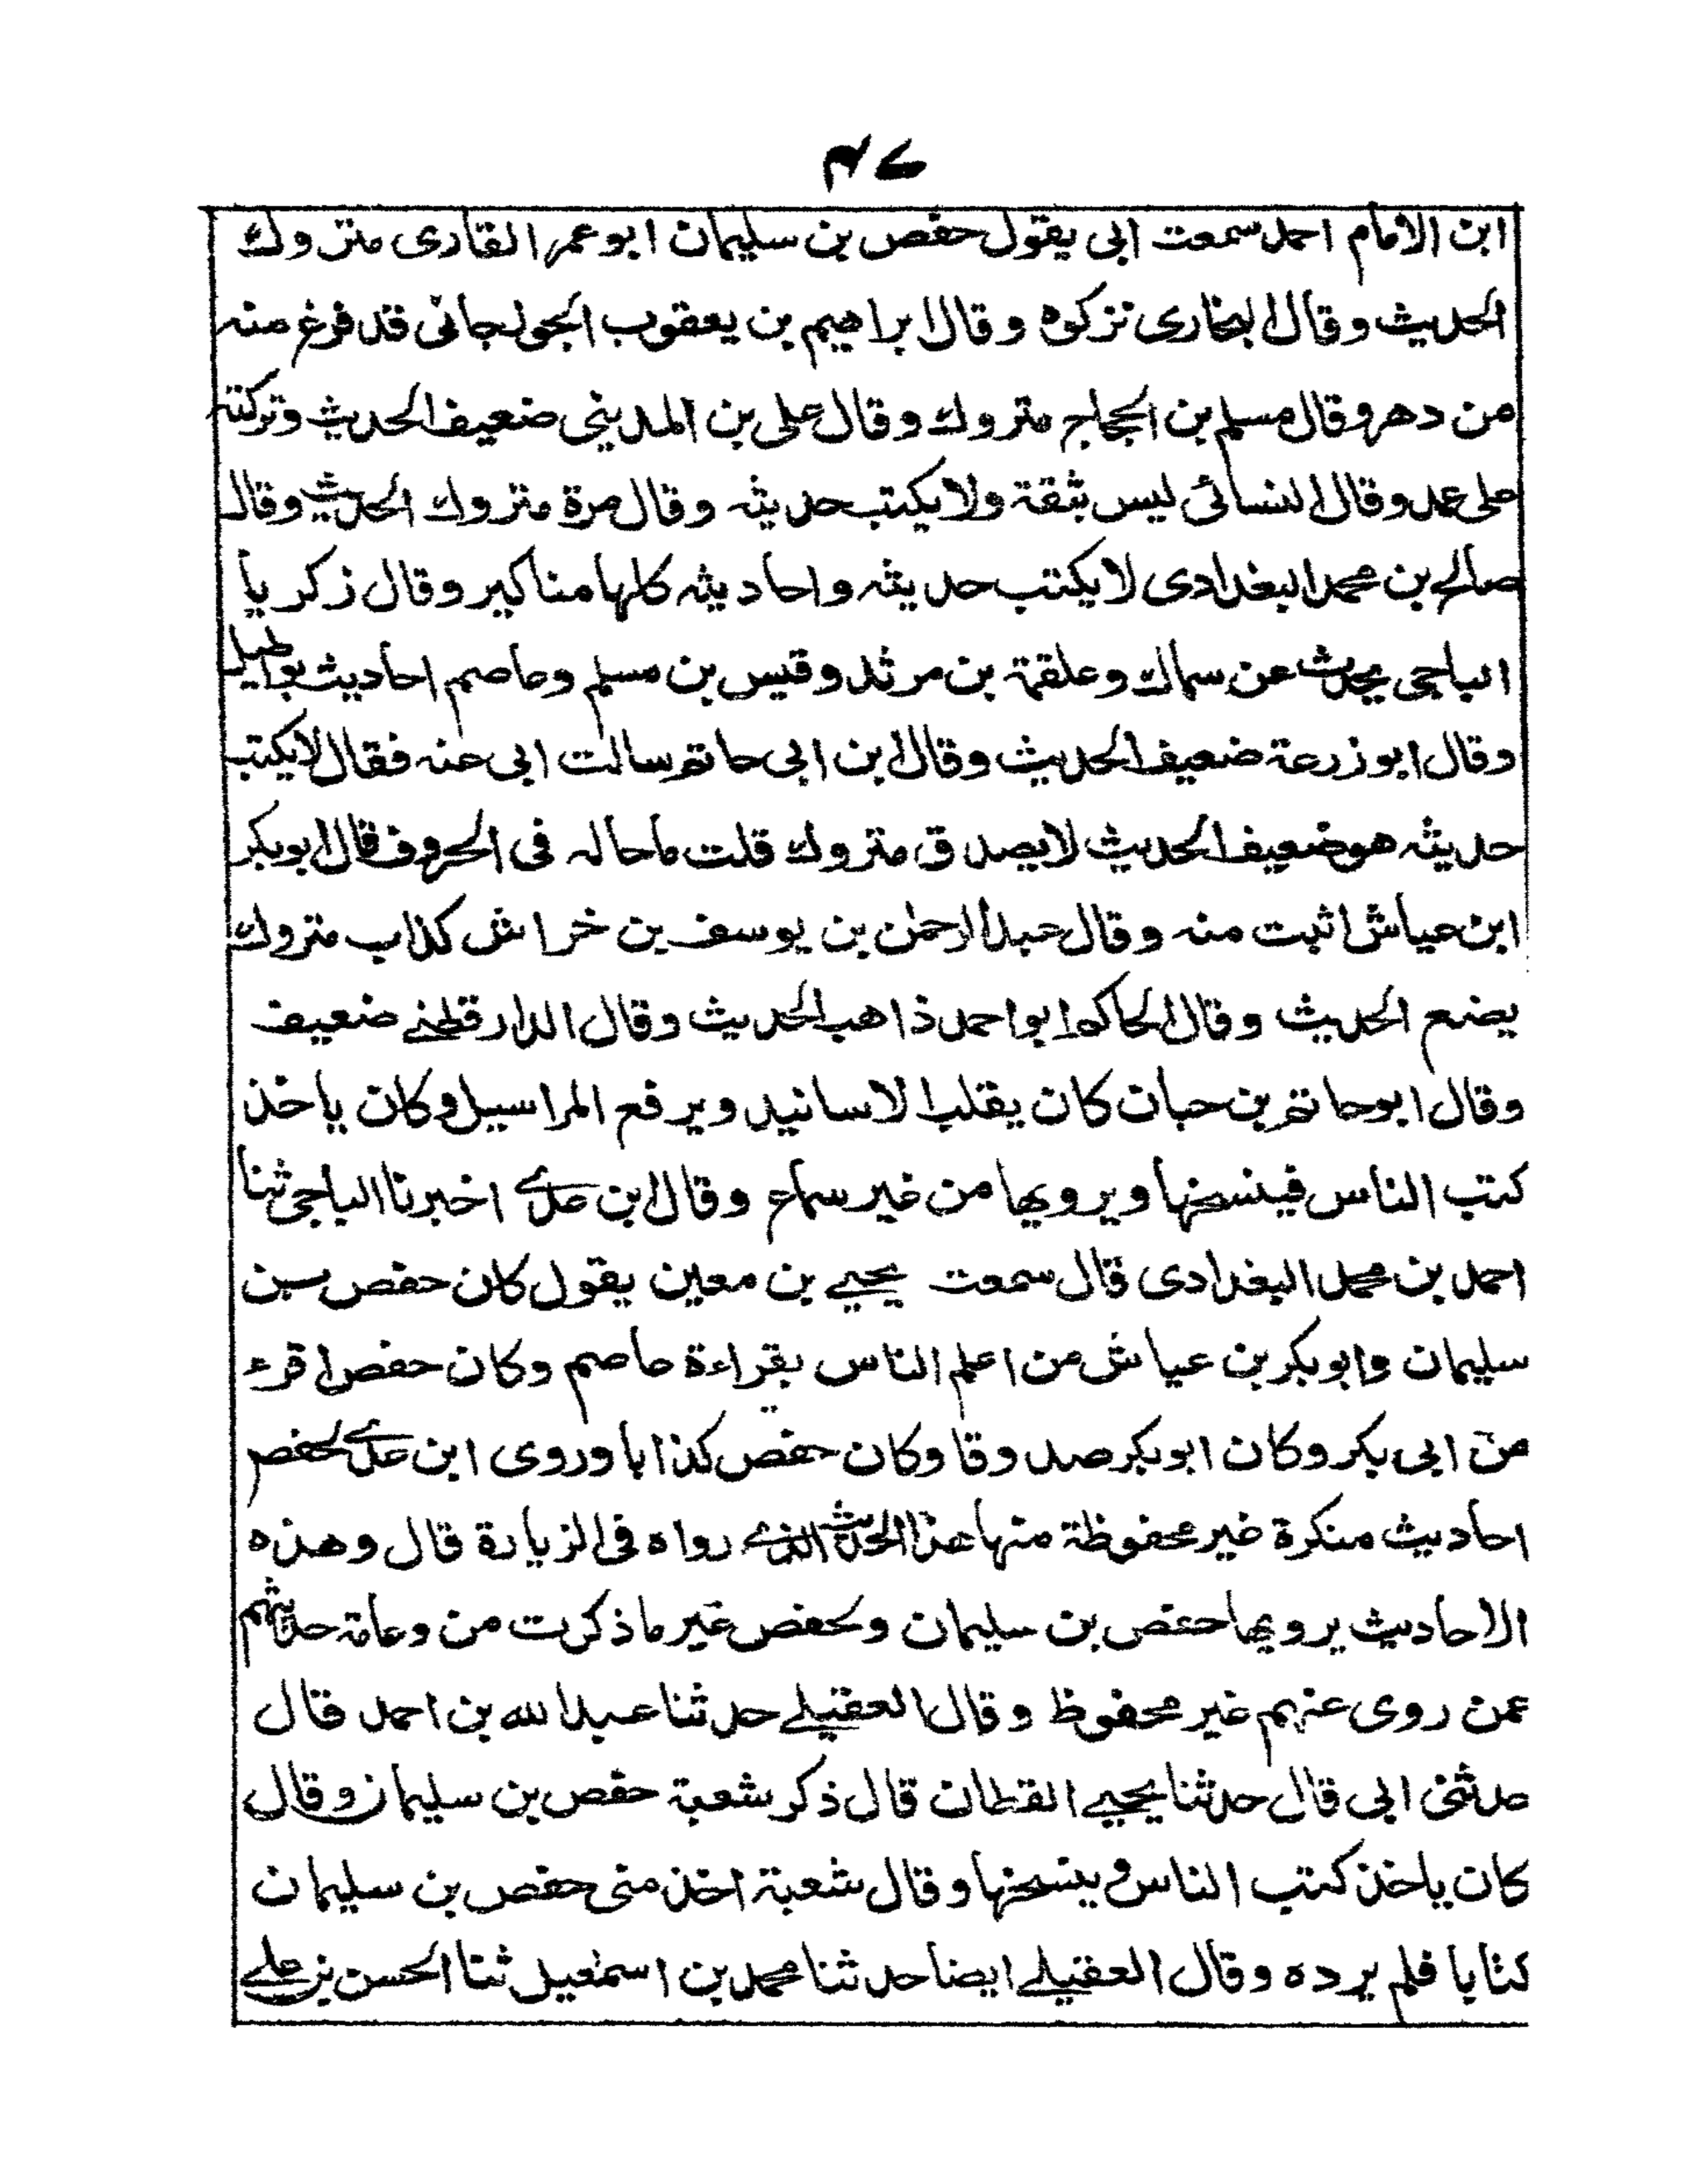 ٤٧
ابن الامام احمد سمعت ابى يقول حفص بن سليمان ابو عمر القارى متروك
الحديث وقال البخارى تركوه وقال ابراهيم بن يعقوب الجولجانى قد فرغ منه
من دهر وقال مسلم بن الحجاج متروك وقال على بن المدينى ضعيف الحديث وتركته
على عمد وقال النسائى ليس بثقة ولا يكتب حديثه وقال مرة متروك الحديث وقال
صالح بن محمد البغدادى لا يكتب حديثه واحاديثه كلها مناكير وقال زكريا
الباجى يحدث عن سماك وعلقمة بن مرثد وقيس بن مسلم وعاصم احاديث بواطيل
وقال ابو زرعة ضعيف الحديث وقال ابن ابى حاتم سالت ابى عنه فقال لا يكتب
حديثه هو ضعيف الحديث لا يصدق متروك قلت ما حاله فى الحروف قال ابو بكر
ابن عياش اثبت منه وقال عبد الرحمٰن بن يوسف بن خراش كذاب متروك
يضع الحديث وقال الحاكم ابو احمد ذاهب الحديث وقال الدارقطنے ضعيف
وقال ابو حاتم بن حبان كان يقلب الاسانيد ويرفع المراسيل وكان ياخذ
كتب الناس فينسخها ويرويها من غير سماع وقال ابن عدے اخبرنا الباجى ثنا
احمد بن محمد البغدادى قال سمعت يحيے بن معين يقول كان حفص بن
سليمان وابو بكر بن عياش من اعلم الناس بقراءة عاصم وكان حفص اقرء
من ابى بكر وكان ابو بكر صدوقا وكان حفص كذابا وروى ابن عدے لحفص
احاديث منكرة غير محفوظة منها هذا الحديث الذے رواه فى الزيارة قال وهذه
الاحاديث يرويها حفص بن سليمان ولحفص غير ما ذكرت من وعامة حديثهم
عمن روى عنهم غير محفوظ وقال العقيلے حدثنا عبد الله بن احمد قال
حدثنى ابى قال حدثنا يحيے القطان قال ذكر شعبة حفص بن سليمان وقال
كان ياخذ كتب الناس وينسخها وقال شعبة اخذ منى حفص بن سليمان
كتابا فلم يرده وقال العقيلے ايضا حدثنا محمد بن اسمٰعيل ثنا الحسن بن علے